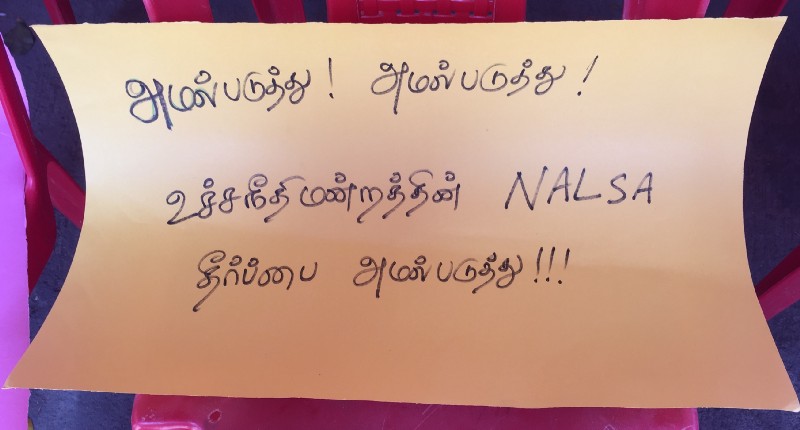 அமல்படுத்து! அமல்படுத்து!
உச்சநீதிமன்றத்தின் NALSA
தீர்ப்பை அமல்படுத்து!!!